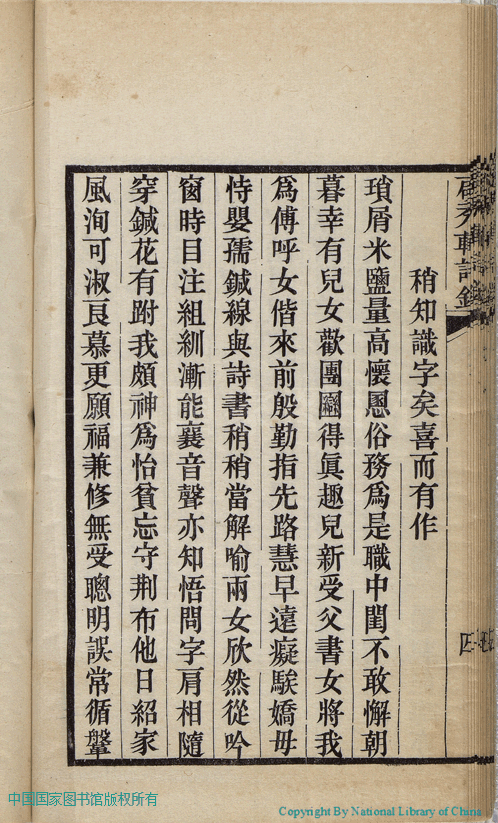 稍知識字矣喜而有作
瑣屑米鹽量高懷慁俗務爲是職中閨不敢懈朝
暮幸有兒女歡團圞得眞趣兒新受父書女將我
爲傅呼女偕來前殷勤指先路慧早遠癡騃嬌毋
恃嬰孺鍼線與詩書稍稍當解喻兩女欣然從吟
窗時目注組紃漸能襄音聲亦知悟問字肩相隨
穿鍼花有跗我頗神爲怡貧忘守荆布他日紹家
風洵可淑艮慕更願福兼修無受聰明誤常循鞶
中国国家图书馆版权所有
Copyright By National Library of China